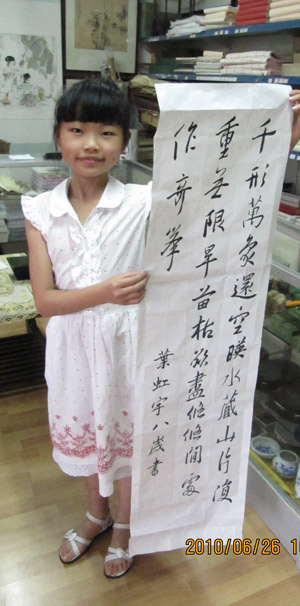 千形萬象還空暎水藏山片復
重無限旱苗枯欲盡悠悠閒處
作奇峯
葉虹宇八歲書
2010/06/26 1